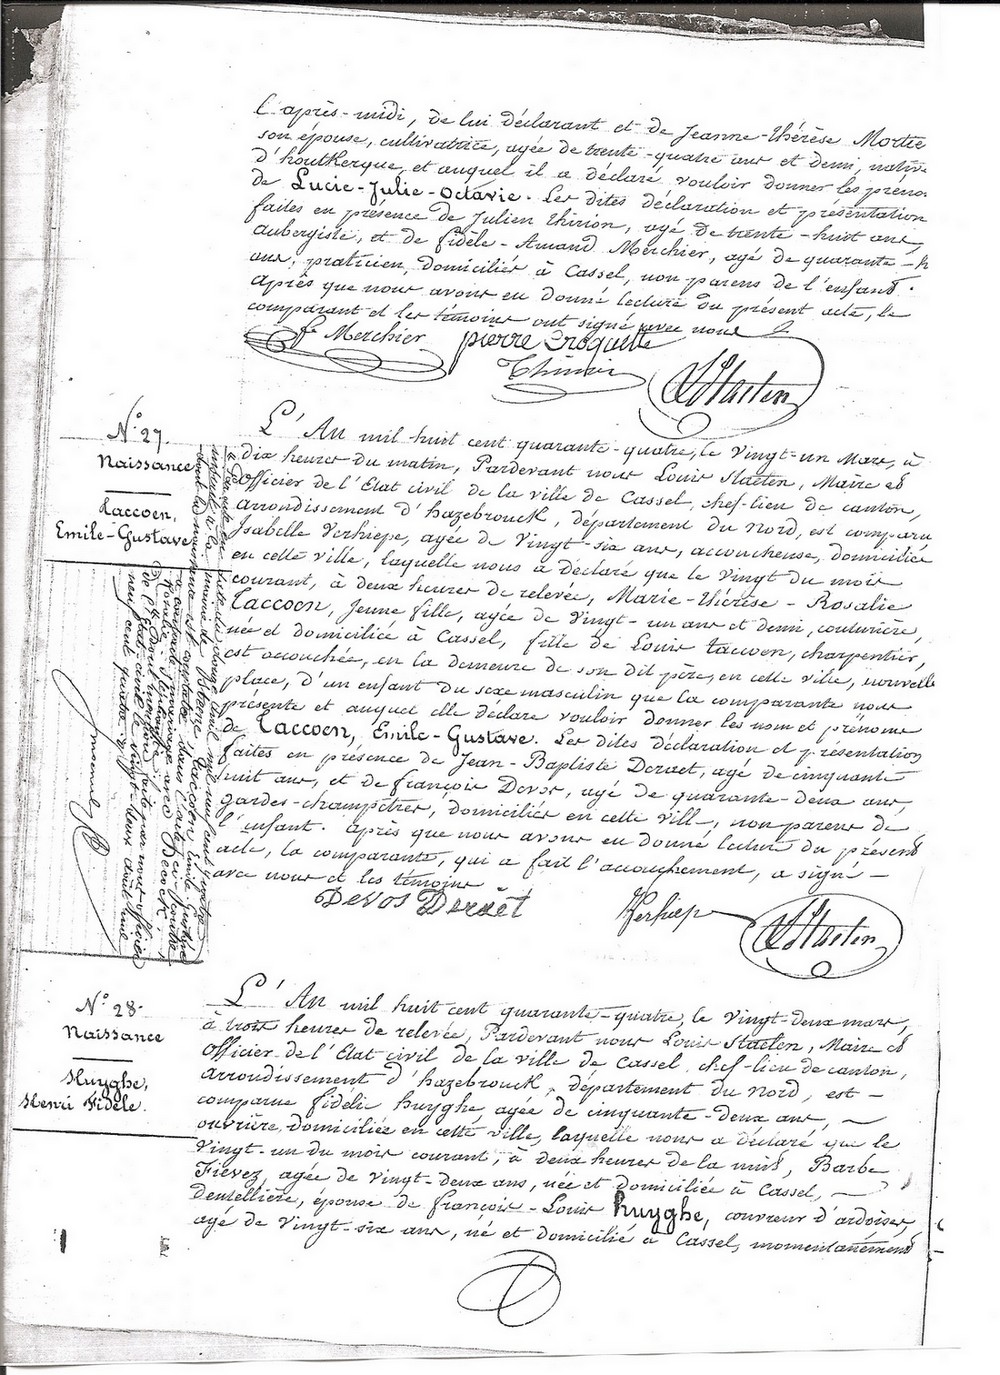 l'après-midi, de lui déclarant et de Jeanne-Thérèse Mortie
son épouse, cultivatrice, agée de trente-quatre ans et demi, native
d'houtkerque, et auquel il a déclaré vouloir donner les préno
de Lucie-Julie-Octavie. Les dites déclaration et présentation
faites en présence de Julien Thirion, agé de trente-huit ans,
aubergiste, et de fidèle-Amand Merchier, agé de quarante-h
ans, praticien, domiciliés à Cassel, non parens de l'enfant.
Après que nous avons eu donné lecture du présent acte, le
comparant et les témoins ont signé avec nous
Merchier Pierre Croquette
Thirion
L. Staelen
N° 27.
Naissance
Taccoen,
Emile-Gustave
L'An mil huit cent quarante-quatre, le vingt-un Mars, à
dix heures du matin, Pardevant nous Louis Staelen, Maire et
officier de l'Etat civil de la ville de Cassel, chef-lieu de canton,
arrondissement d'hazebrouck, département du Nord, est comparu
Isabelle Verhiepe, agée de vingt-six ans, accoucheuse, domiciliée
en cette ville, laquelle nous a déclaré que le vingt du mois
courant, à deux heures de relevée, Marie-Thérèse-Rosalie
Taccoen, Jeune fille, agée de vingt-un ans et demi, couturière,
née et domiciliée à Cassel, fille de Louis taccoen, charpentier,
est accouchée, en la demeure de son dit père, en cette ville, nouvelle
place, d'un enfant du sexe masculin que la comparante nous
présente et auquel elle déclare vouloir donner les nom et prénoms
de Taccoen, Emile-Gustave. Les dites déclaration et présentation
faites en présence de Jean-Baptiste Deraet, agé de cinquante
huit ans, et de françois Devos, agé de quarante-deux ans,
gardes-champêtres, domiciliés en cette ville, non parens de
l'enfant. Après que nous avons eu donné lecture du présent
acte, la comparante, qui a fait l'accouchement, a signé
avec nous et les témoins
Devos Deraët Verhiepe
L. Staelen
N° 28.
Naissance
Huyghe,
Henri Fidèle.
L'An mil huit cent quarante-quatre, le vingt-deux mars,
à trois heures de relevée, Pardevant nous Louis Staelen, Maire et
officier de l'Etat civil de la ville de Cassel, chef-lieu de canton,
arrondissement d'hazebrouck, département du Nord, est
comparue fidelie huyghe, agée de cinquante-deux ans,
ouvrière, domiciliée en cette ville, laquelle nous a déclaré que le
vingt-un du mois courant, à deux heures de la nuit, Barbe
Fievez, agée de vingt-deux ans, née et domiciliée à Cassel,
dentellière, épouse de françois-Louis huyghe, couvreur d'ardoises,
agé de vingt-six ans, né et domicilié à Cassel, momentanément